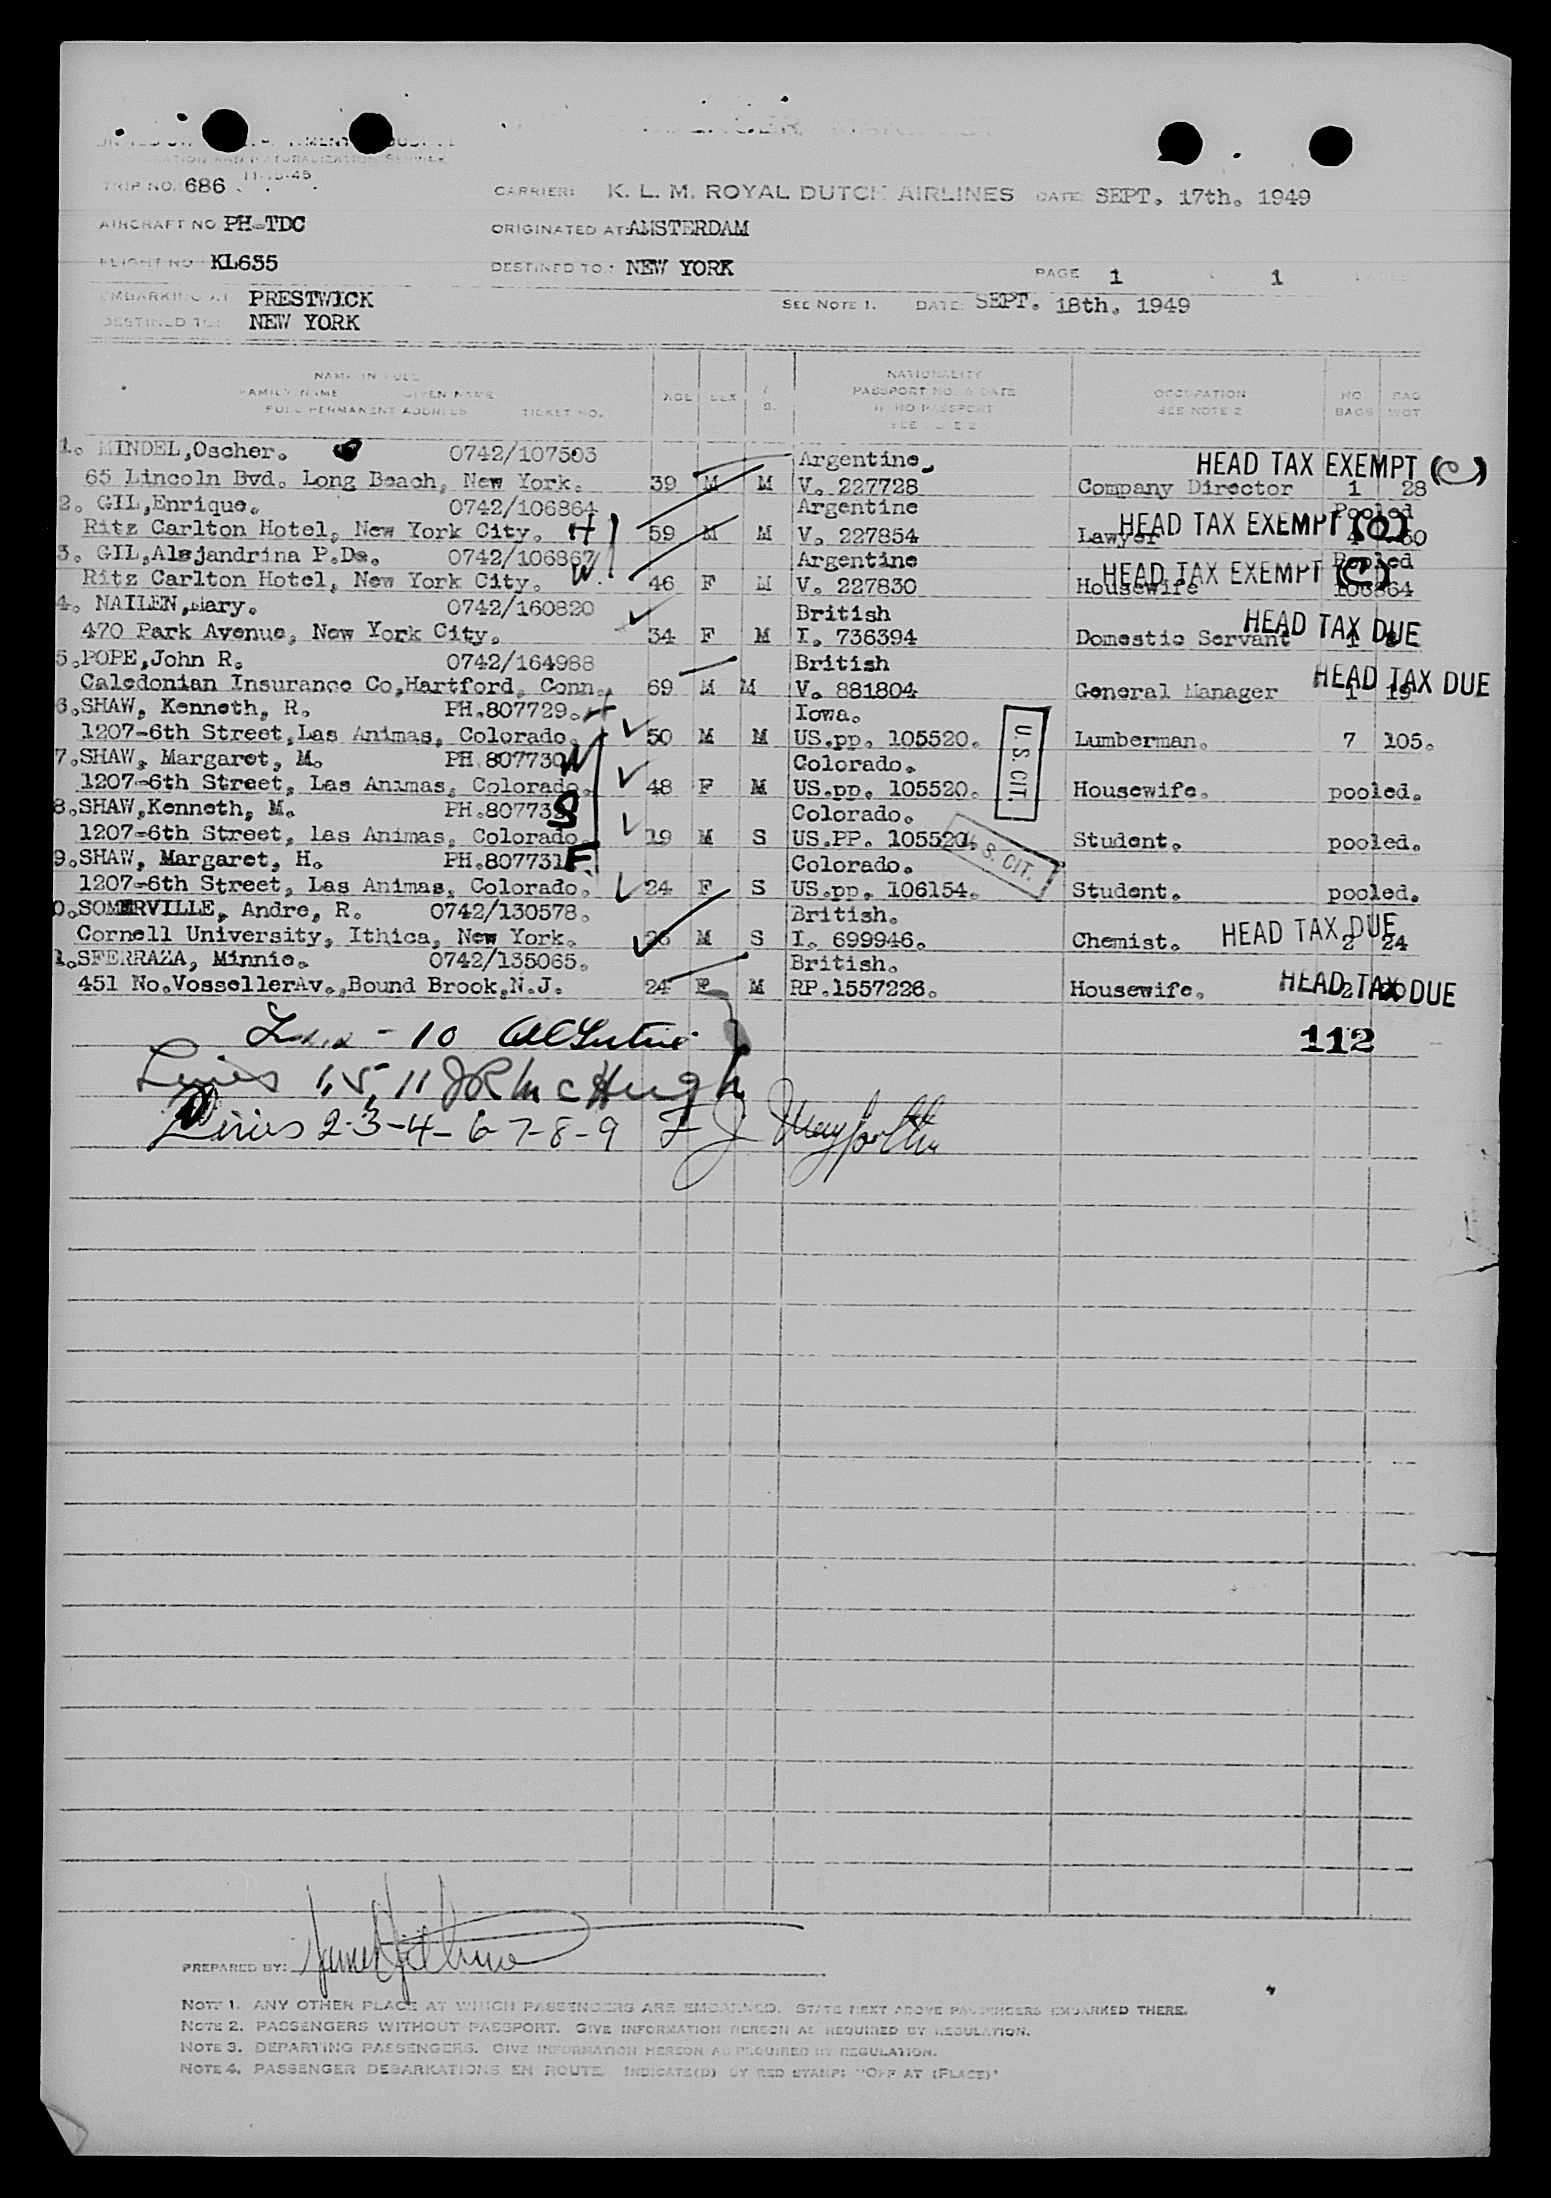 11-15-45
TRIP NO. 686 CARRIER: K. L. M. ROYAL DUTCH AIRLINES DATE: SEPT. 17th. 1949
AIRCRAFT NO PH-TDC ORIGINATED AT: AMSTERDAM
FLIGHT NO KL635 DESTINED TO: NEW YORK PAGE 1 1
EMBARKING AT PRESTWICK SEE NOTE 1. DATE: SEPT. 18th. 1949
DESTINED TO: NEW YORK
NAME IN FULL NATIONALITY
FAMILY NAME GIVEN NAME AGE SEX PASSPORT NO. & DATE OCCUPATION NO BAG
FULL PERMANENT ADDRESS TICKET NO. S. IF NO PASSPORT SEE NOTE 2 BAGS WGT
1. MINDEL,Oscher. 0742/107503 Argentine. HEAD TAX EXEMPT (C)
65 Lincoln Bvd. Long Beach, New York. 39 M M V. 227728 Company Director 1 28
2. GIL,Enrique. 0742/106864 Argentine Pooled HEAD TAX EXEMPT (C)
Ritz Carlton Hotel, New York City. H 59 M M V. 227854 Lawyer 4 60
3. GIL,Alejandrina P.De. 0742/106867 Argentine Pooled HEAD TAX EXEMPT (C)
Ritz Carlton Hotel, New York City. W. 46 F M V. 227830 Housewife 106864
4. NAILEN,Mary. 0742/160820 British HEAD TAX DUE
470 Park Avenue, New York City. 34 F M I. 736394 Domestic Servant 1
5.POPE,John R. 0742/164988 British HEAD TAX DUE
Caledonian Insurance Co,Hartford, Conn. 69 M M V. 881804 General Manager 1 19
6.SHAW, Kenneth, R. PH.807729. H Iowa.
1207-6th Street,Las Animas, Colorado. 50 M M US.pp. 105520. U.S. CIT. Lumberman. 7 105.
7.SHAW, Margaret, M. PH.807730 W Colorado.
1207-6th Street, Las Animas, Colorado. 48 F M US.pp. 105520. Housewife. pooled.
8.SHAW,Kenneth, M. PH.80773 S Colorado.
1207-6th Street, Las Animas, Colorado. 19 M S US.PP. 105520. U. S. CIT. Student. pooled.
9.SHAW, Margaret, H. PH.807731 F Colorado.
1207-6th Street, Las Animas, Colorado. 24 F S US.pp. 106154. Student. pooled.
0.SOMERVILLE, Andre, R. 0742/130578. British. HEAD TAX DUE
Cornell University, Ithica, New York. 26 M S I. 699946. Chemist. 2 24
1.SFERRAZA, Minnie. 0742/135065. British. HEAD TAX DUE
451 No.VossellerAv.,Bound Brook,N.J. 24 F M RP.1557226. Housewife. 2
- 10 112
Lines 1, 5, 11 J R McHugh
Lines 2-3-4-6-7-8-9 F J
PREPARED BY:
NOTE 1. ANY OTHER PLACE AT WHICH PASSENGERS ARE EMBARKED. STATE NEXT ABOVE PASSENGERS EMBARKED THERE.
NOTE 2. PASSENGERS WITHOUT PASSPORT. GIVE INFORMATION HEREON AS REQUIRED BY REGULATION.
NOTE 3. DEPARTING PASSENGERS. GIVE INFORMATION HEREON AS REQUIRED BY REGULATION.
NOTE 4. PASSENGER DEBARKATIONS EN ROUTE. INDICATE(D) BY RED STAMP: "OFF AT (PLACE)"